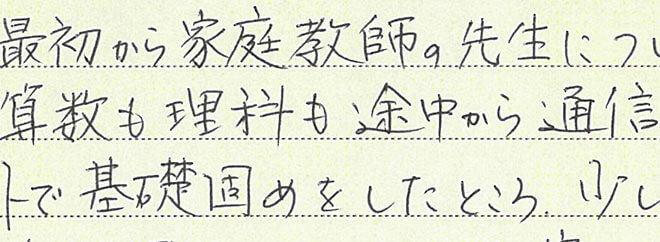 最初から家庭教師の先生につ
算数も理科も途中から通信
トで基礎固めをしたところ、少し